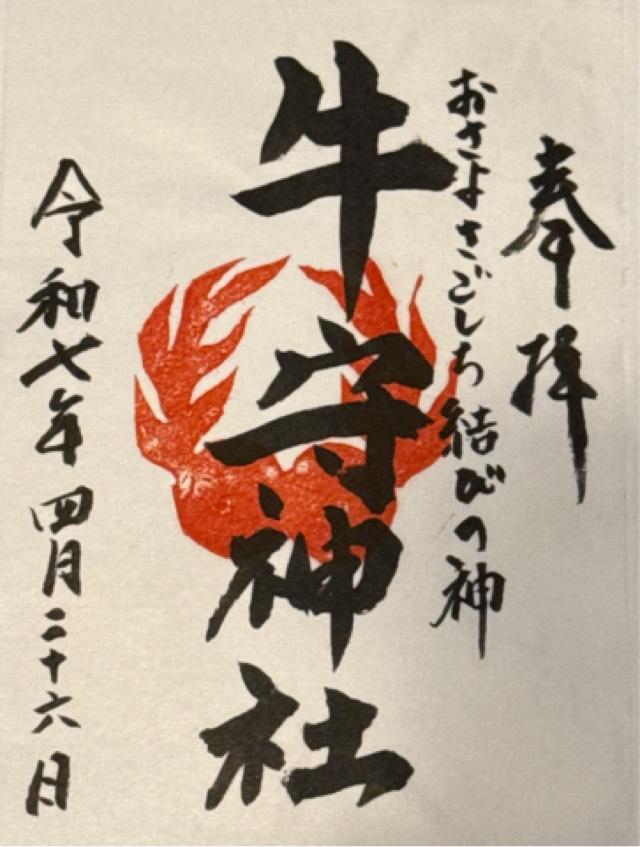 奉拝
おさよさごしち結びの神
牛守神社
令和七年四月二十六日